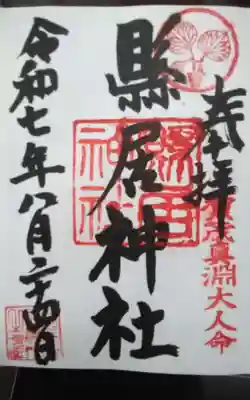 奉拝
賀茂真淵大人命
縣居神社
縣居
神社
令和七年八月二十四日